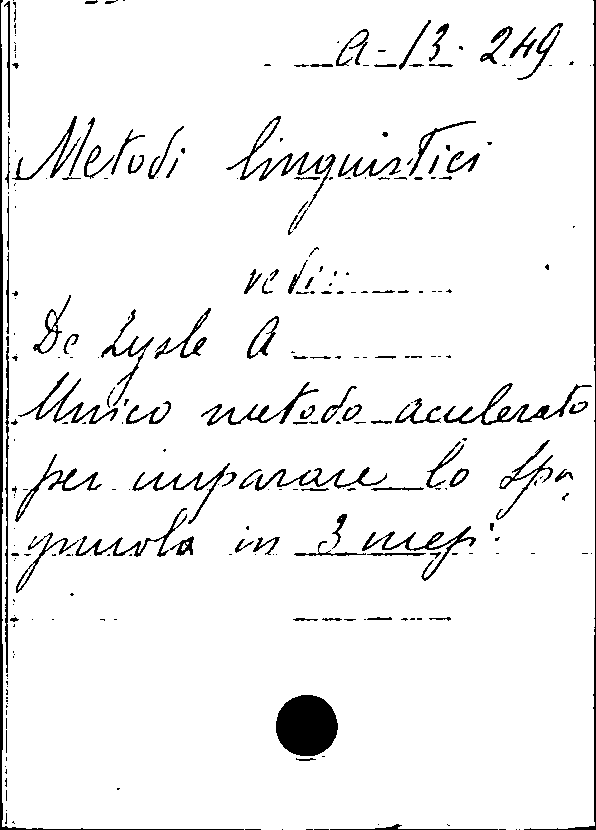 A-13-249.
Metodi linguistici
vedi:
De Lysle A
Unico metodo accelerato
per imparare lo Spa
gnuola in 3 mesi.